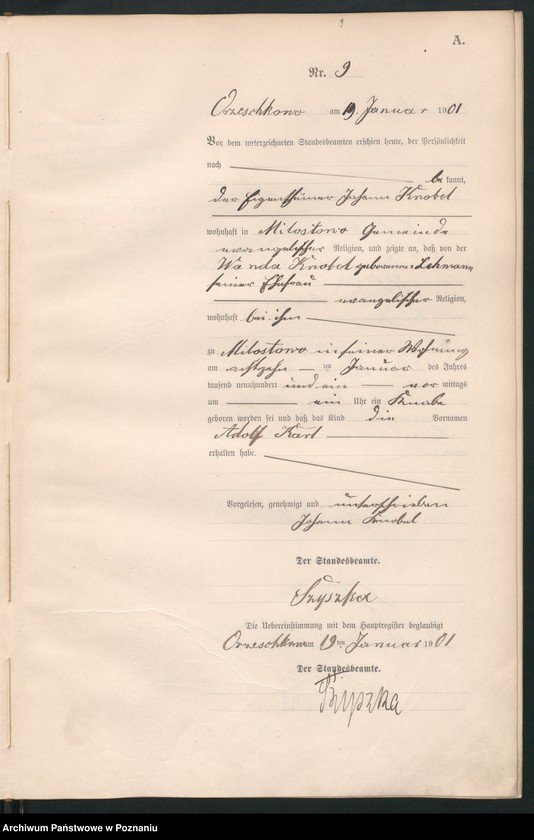 9
A.
Nr. 9
Orzeschkowo am 19. Januar 1901
Vor dem unterzeichneten Standesbeamten erschien heute, der Persönlichkeit
nach
be kannt,
der Eigenthümer Johann Knobel
wohnhaft in Milostowo Gemeinde
evangelischer Religion, und zeigte an, daß von der
Wanda Knobel geborenen Lehmann
seiner Ehefrau
evangelischer Religion,
wohnhaft bei ihm
zu Milostowo in seiner Wohnung
am achtzehn ten Januar des Jahres
tausend neunhundert und ein vor mittags
um ein Uhr ein Knabe
geboren worden sei und daß das Kind die Vornamen
Adolf Karl
erhalten habe.
Vorgelesen, genehmigt und unterschrieben
Johann Knobel
Der Standesbeamte.
Szyszka
Die Uebereinstimmung mit dem Hauptregister beglaubigt
Orzeschkowo am 19 ten Januar 1901
Der Standesbeamte.
Szyszka
Archiwum Państwowe w Poznaniu